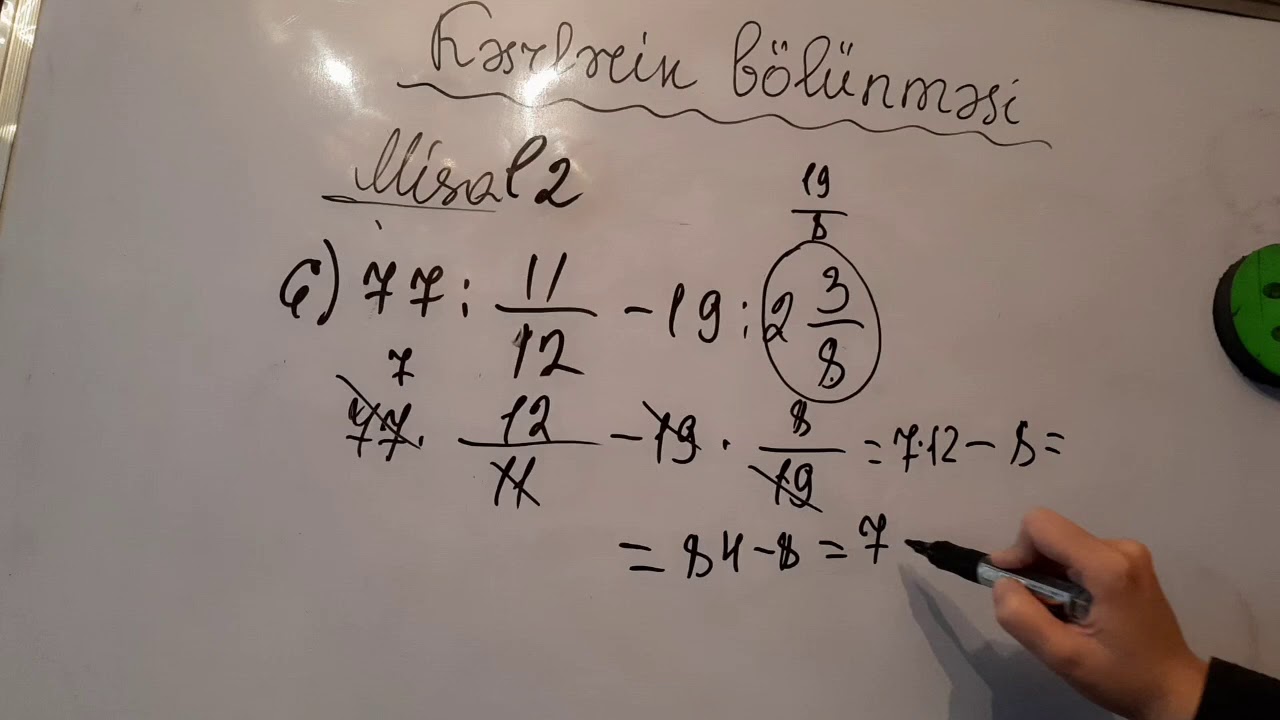 Kəsrlərin bölünməsi
Misal 2
19/8
Ç) 77 : 11/12 - 19 : 2 3/8
7
77 · 12/11 - 19 · 8/19 = 7·12 - 8 =
= 84 - 8 = 7